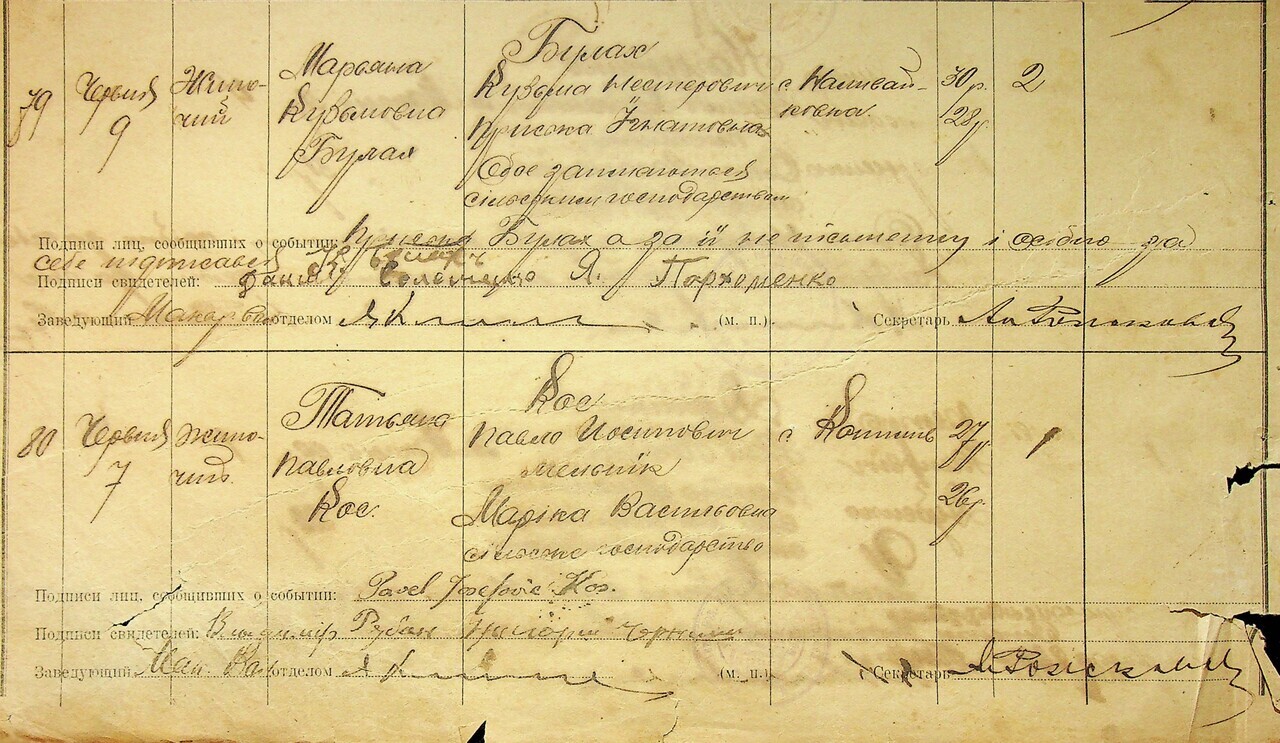 79
Червня
9
Жіно-
чий
Марьяна
Кузьмовна
Булах
Булах
Кузьма Нестерович
Присока Ігнатовна
Обое занимаються
сільским господарством
с Наливай-
ковка
30 р.
28 р
2
Подписи лиц, сообщивших о событии: Булах а за її не письменну і особою за
себе подписався
Подписи свидетелей: Я. Пархоменко
Заведующий Макар. отделом
(м. п.)
Секретарь
80
Червня
7
жіно-
чий
Татьяна
Павловна
Кос.
Кос
Павло Иосипович
Марійка Васильовна
сільське господарство
с
27 р
26 р.
1
Подписи лиц, сообщивших о событии: Pavel Josefovič Kos.
Подписи свидетелей: Владимір Рубан Григорий
Заведующий Мак. отделом
(м. п.)
Секретарь